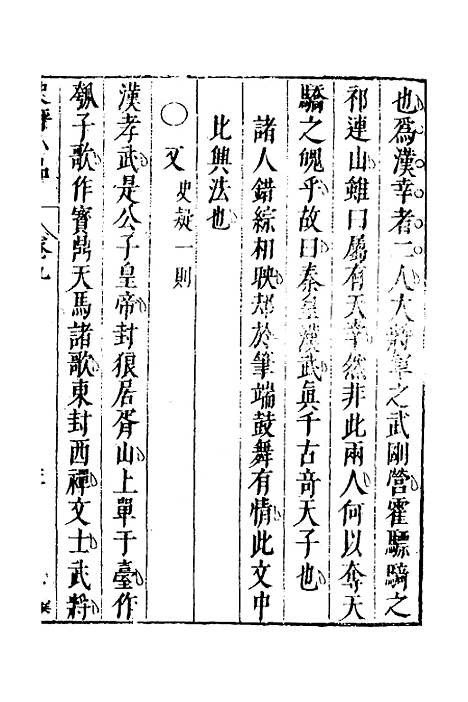 也爲漢幸者二人大將軍之武剛營霍驃騎之
祁連山雖曰屬有天幸然非此兩人何以奪天
驕之魄乎故曰秦皇漢武眞千古竒天子也
諸人錯綜相映却於筆端鼓舞有情此文中
比興法也
○又史疑一則
漢孝武是公子皇帝封狼居胥山上單于臺作
瓠子歌作寶鼎天馬諸歌東封西禪文士武將
卷九